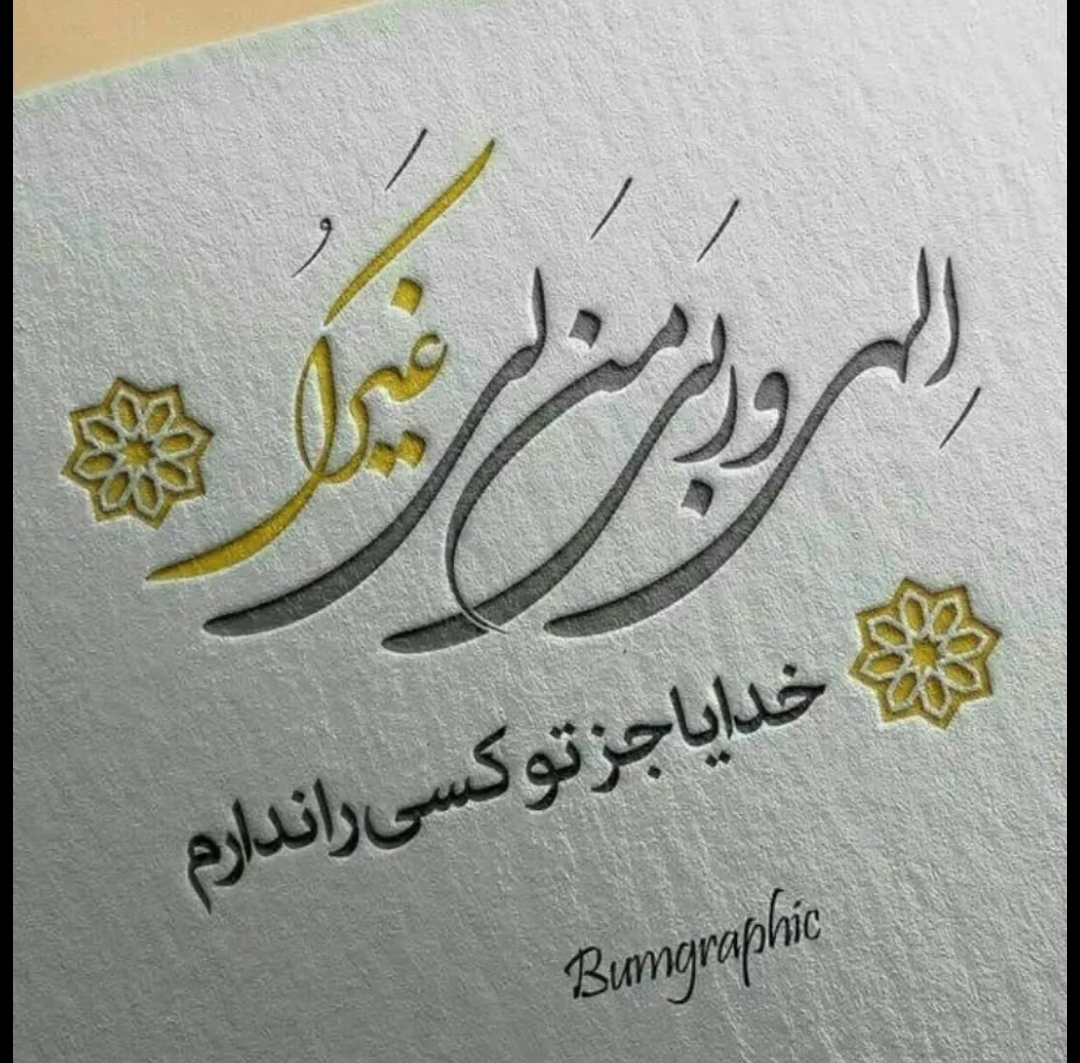 إلهي و ربي مَن لي غیرُکَ
خدایا جز تو کسی را ندارم
Bumgraphic